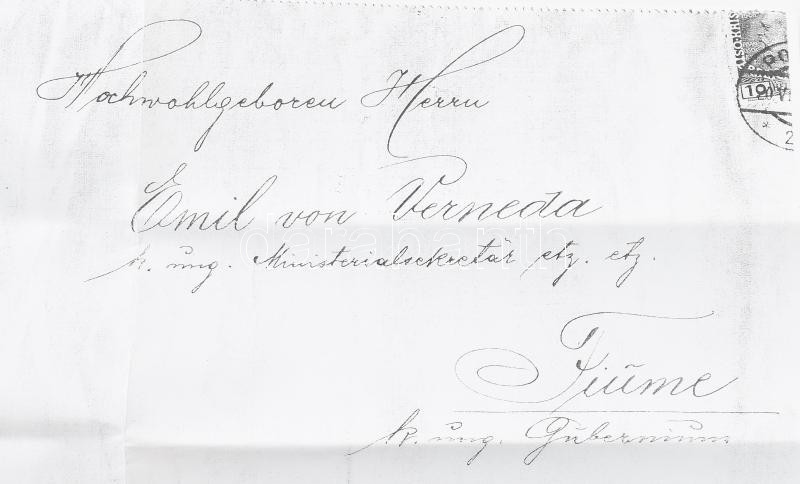 Hochwohlgeboren Herrn
Emil von Verneda
k. ung. Ministerialsekretär etz. etz.
Fiūme
k. ung. Gūbernium
darabanth
10
2